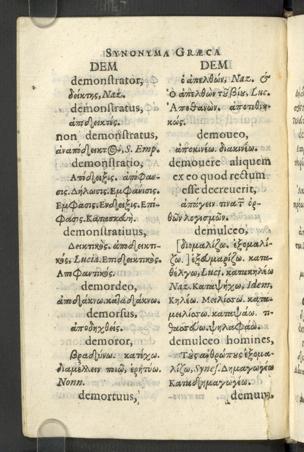 SYNONYMA GRÆCA
DEM
demonstrator,
δείκτης, Naz.
demonstratus,
ἀποδεικτός.
non demonstratus,
ἀναπόδεικτος, S. Emp.
demonstratio,
Ἀπόδειξις. ἀπόφαν-
σις. Δήλωσις. Ἐμφάνισις.
Ἔμφασις. Ἔνδειξις. Ἐπί-
φασις. Κατασκευή.
demonstratiuus,
Δεικτικός. ἀποδεικτι-
κός, Lucia. Ἐπιδεικτικός.
Ἀποφαντικός.
demordeo,
ἀποδάκνω. καταδάκνω.
demorsus,
ἀποδηχθείς.
demoror,
Βραδύνω. κατέχω.
διαμέλλειν ποιῶ, ἐρητύω.
Nonn.
demortuus,
DEM
ὁ ἀπελθών, Naz. &
Ὁ ἀπελθὼν τοῦ βίου, Luc.
Ἀποθανών. ἀποτεθνη-
κώς.
demoueo,
ἀποκινέω. διακινέω.
demouere aliquem
ex eo quod rectum
esse decreuerit,
ἀπάγειν τινὰ τῶν ὀρ-
θῶν λογισμῶν.
demulceo,
[διομαλίζω. ἐξομαλί-
ζω.] ἐξευμαρίζω. κατα-
θέλγω, Luci. κατακηλέω
Naz. Κατεπᾴδω, Idem,
Κηλέω. Μειλίσσω. κατα-
μειλίσσω. καταψάω. τι-
θασσεύω. ψηλαφάω.
demulceo homines,
Τοὺς ἀνθρώπους ἐξομα-
λίζω, Synes. Δημαγωγέω
Καταδημαγωγέω.
demum,